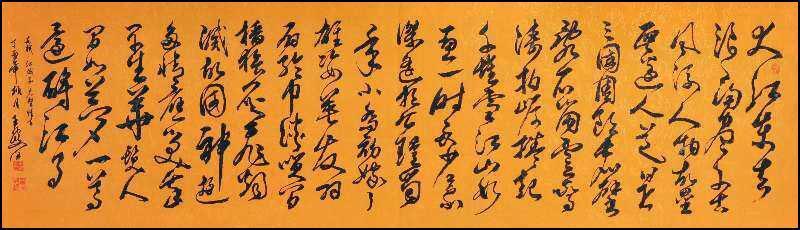 大江东去
浪淘尽千古
风流人物故垒
西边人道是
三國周郎赤壁
乱石崩云惊
涛拍岸捲起
千堆雪江山如
画一时多少豪
杰遥想公瑾当
年小乔初嫁了
雄姿英发羽
扇纶巾谈笑间
樯橹灰飞烟
灭故國神游
多情应笑我
早生華髮人
间如梦一尊
还酹江月